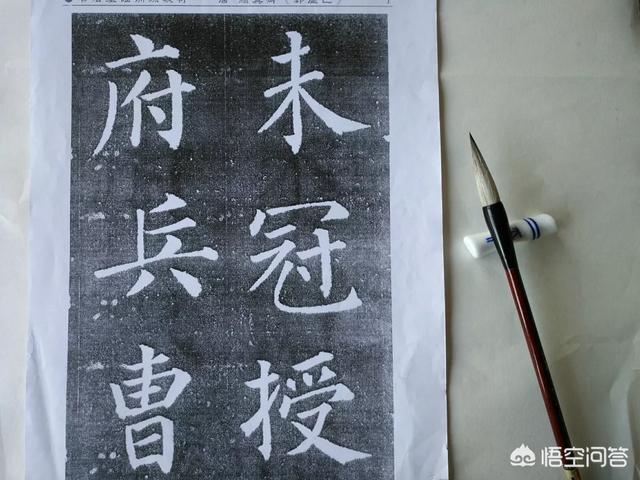 未冠授
府兵曹
悟空问答